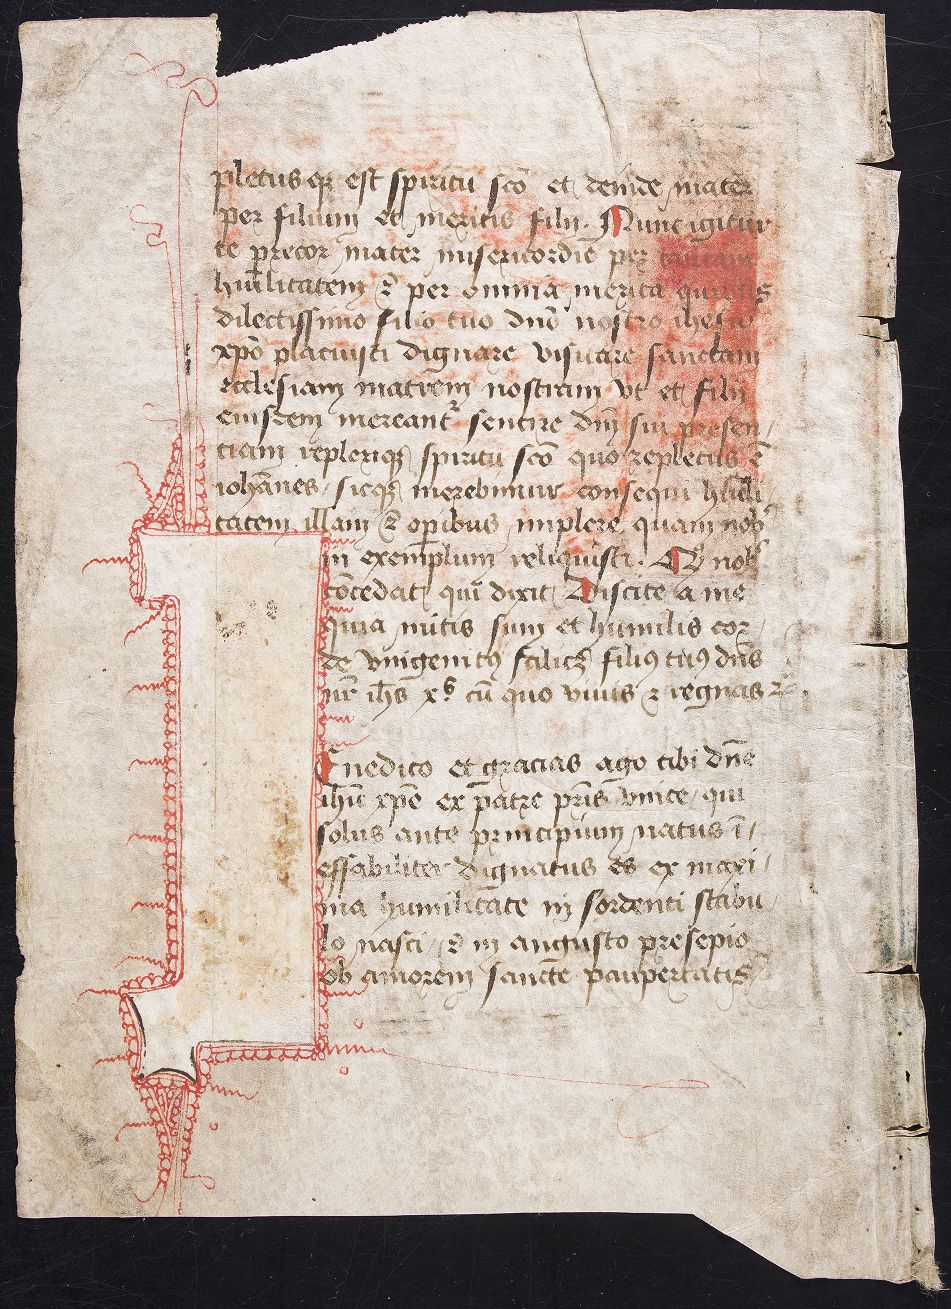 pletus qȝ est spiritu sc̄o et deinde mater
per filium et meritis filij. Nunc igitur
te precor mater misericordie per tantam
hūilitatem ⁊ per omnia merita quibus
dilectissimo filio tuo dn̄o nostro ihesu
xp̄o placuisti dignare visitare sanctam
ecclesiam matrem nostram vt et filij
eiusdem mereant᷑ sentire dn̄i sui presen/
ciam repleriqȝ spiritu sc̄o quo repletus ē
iohānes / sicqȝ merebimur consequi hūili
tatem illam ⁊ opibus implere quam nob᷒
in exemplum reliquisti. Qd nob᷒
cōcedat qui dixit Discite a me
quia mitis sum et humilis cor/
de vnigenitꝰ scilicȝ filiꝰ tuꝰ dn̄s
nr̄ ih̄s xꝰ cū quo viuis ⁊ regnas ⁊c̄.
Enedico et gracias ago tibi dn̄e
ihū xp̄e ex patre pr̄is vnice / qui
solus ante principium natus ī/
effabiliter dignatus es ex maxi/
ma humilitate in sordenti stabu/
lo nasci / ⁊ in angusto presepio
ob amorem sancte paupertatis